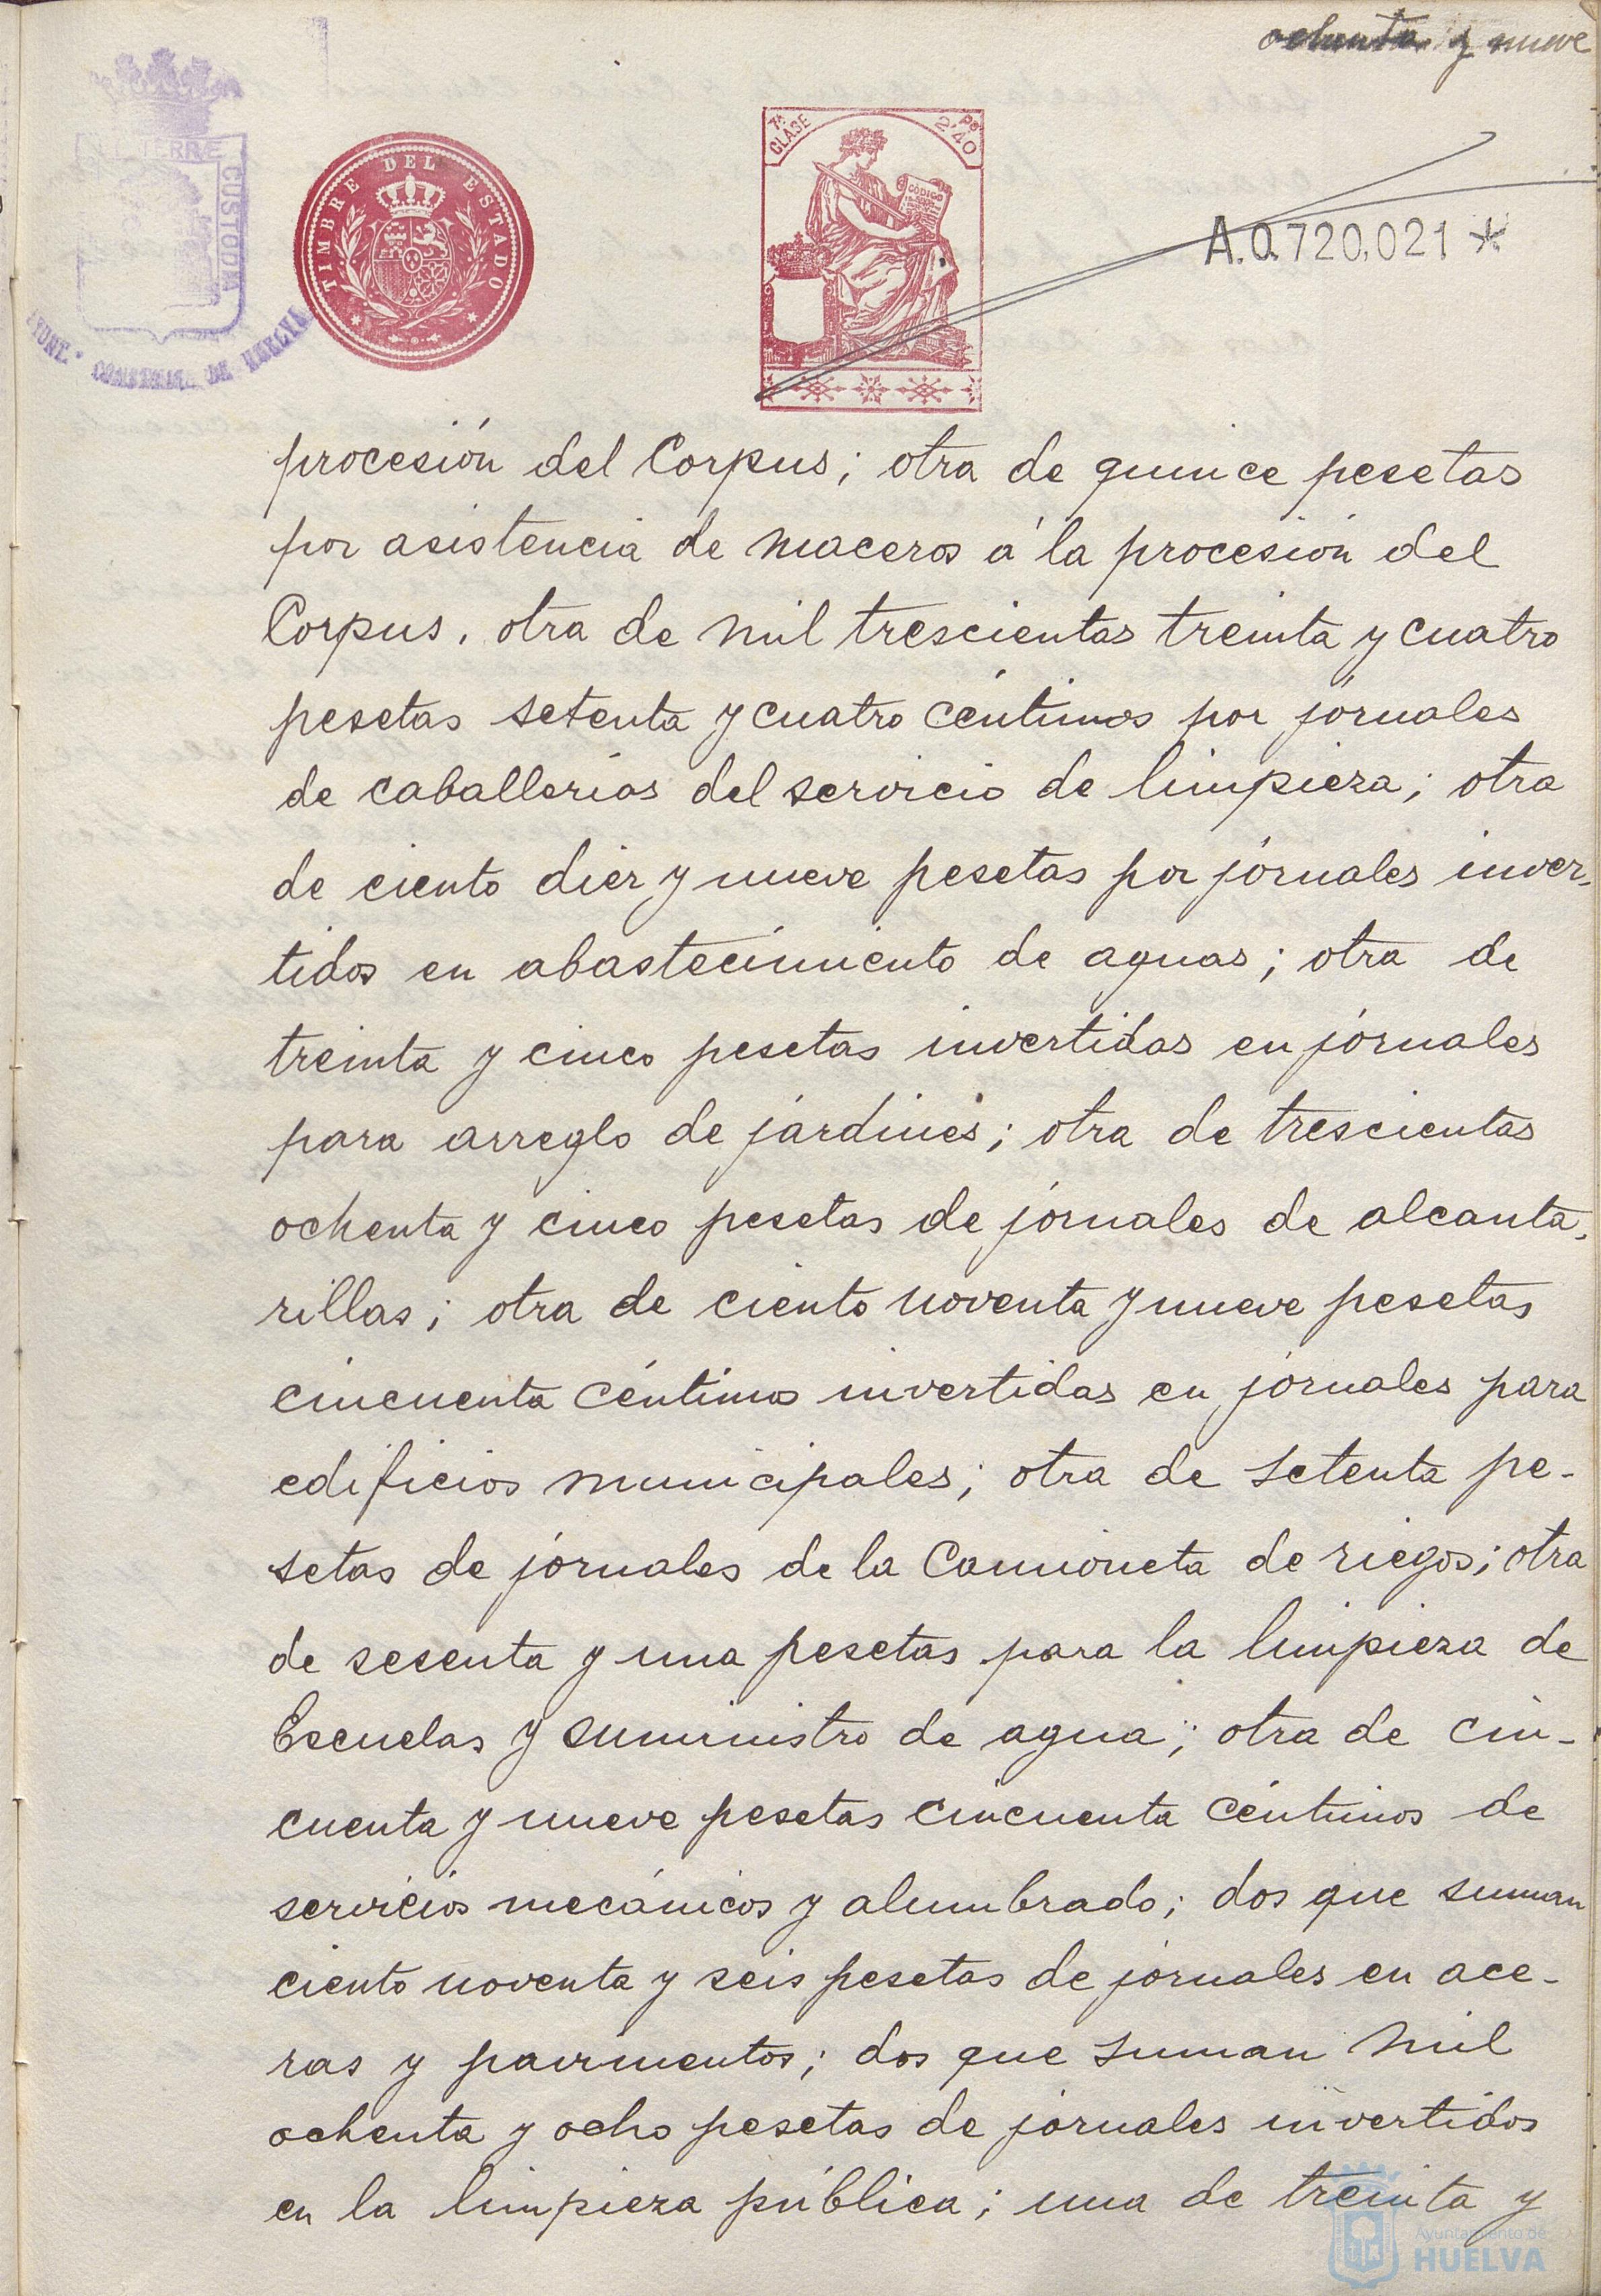 ochenta y nueve
TERRÆ
CUSTODIA
AYUNT.
DE HUELVA
TIMBRE DEL ESTADO
7ª CLASE
Ps 2'40
CÓDIGO
A.0.720,021 *
procesión del Corpus; otra de quince pesetas
por asistencia de maceros á la procesión del
Corpus, otra de mil trescientas treinta y cuatro
pesetas setenta y cuatro céntimos por jornales
de caballerías del servicio de limpieza; otra
de ciento diez y nueve pesetas por jornales inver-
tidos en abastecimiento de aguas; otra de
treinta y cinco pesetas invertidas en jornales
para arreglo de jardines; otra de trescientas
ochenta y cinco pesetas de jornales de alcanta-
rillas; otra de ciento noventa y nueve pesetas
cincuenta céntimos invertidas en jornales para
edificios municipales; otra de setenta pe-
setas de jornales de la Camioneta de riegos; otra
de sesenta y una pesetas para la limpieza de
Escuelas y suministro de agua; otra de cin-
cuenta y nueve pesetas cincuenta céntimos de
servicios mecánicos y alumbrado; dos que suman
ciento noventa y seis pesetas de jornales en ace-
ras y pavimentos; dos que suman mil
ochenta y ocho pesetas de jornales invertidos
en la limpieza pública; una de treinta y
Ayuntamiento de
HUELVA